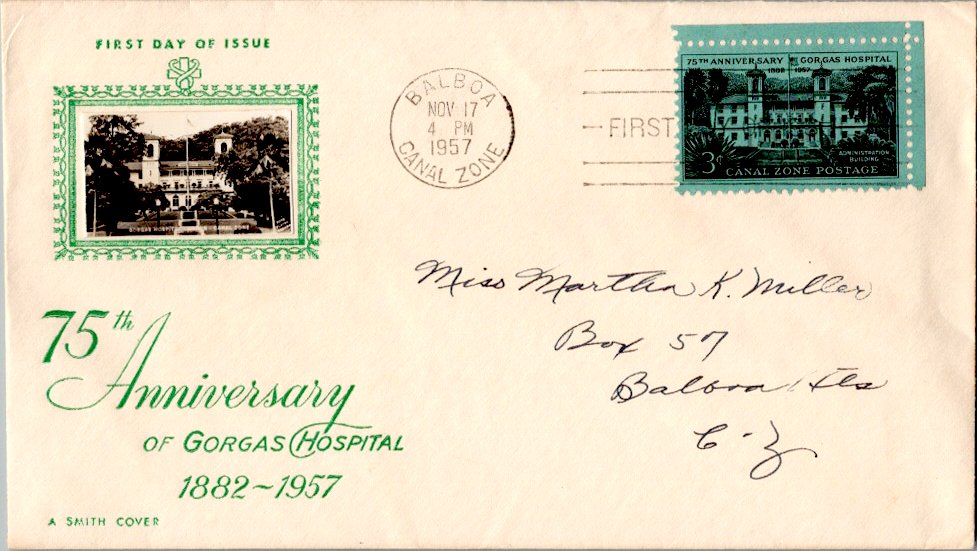 FIRST DAY OF ISSUE
GORGAS HOSPITAL CANAL ZONE
75th
Anniversary
OF GORGAS HOSPITAL
1882~1957
A SMITH COVER
BALBOA
NOV 17
4 PM
1957
CANAL ZONE
FIRST
75TH ANNIVERSARY GORGAS HOSPITAL
1882 1957
ADMINISTRATION
BUILDING
3¢ CANAL ZONE POSTAGE
Miss Martha K. Miller
Box 57
Balboa Hts
C-Z